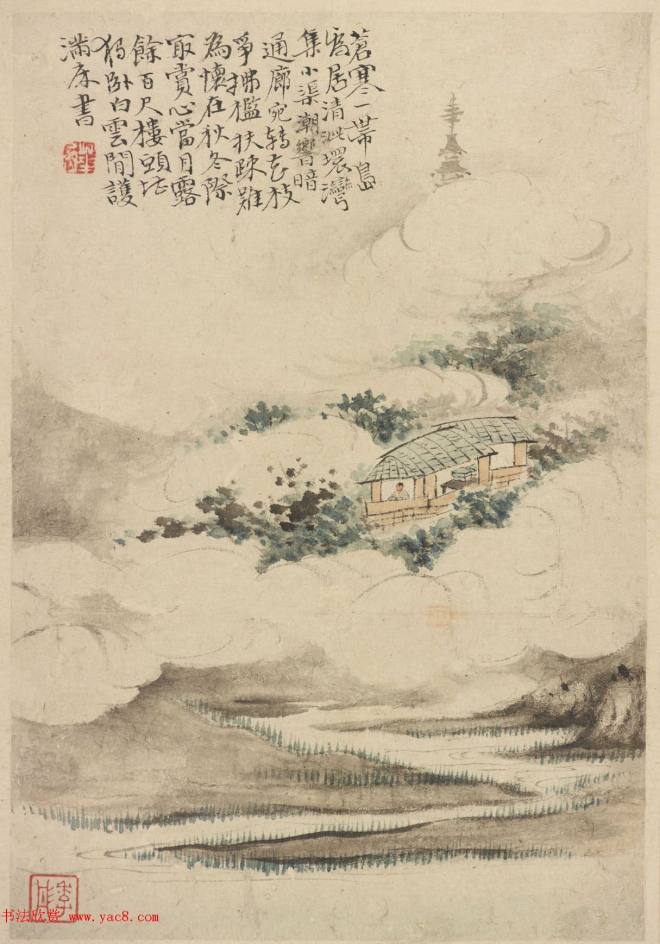 蒼寒一帶島
居清泚環灣
集小渠潮響暗
通廊宛轉花枝
爭拂檻扶疎難
為懷在秋冬際
冣賞心當月露
餘百尺樓頭堪
獨卧白雲閒護
滿床書
书法欣赏 www.yac8.com